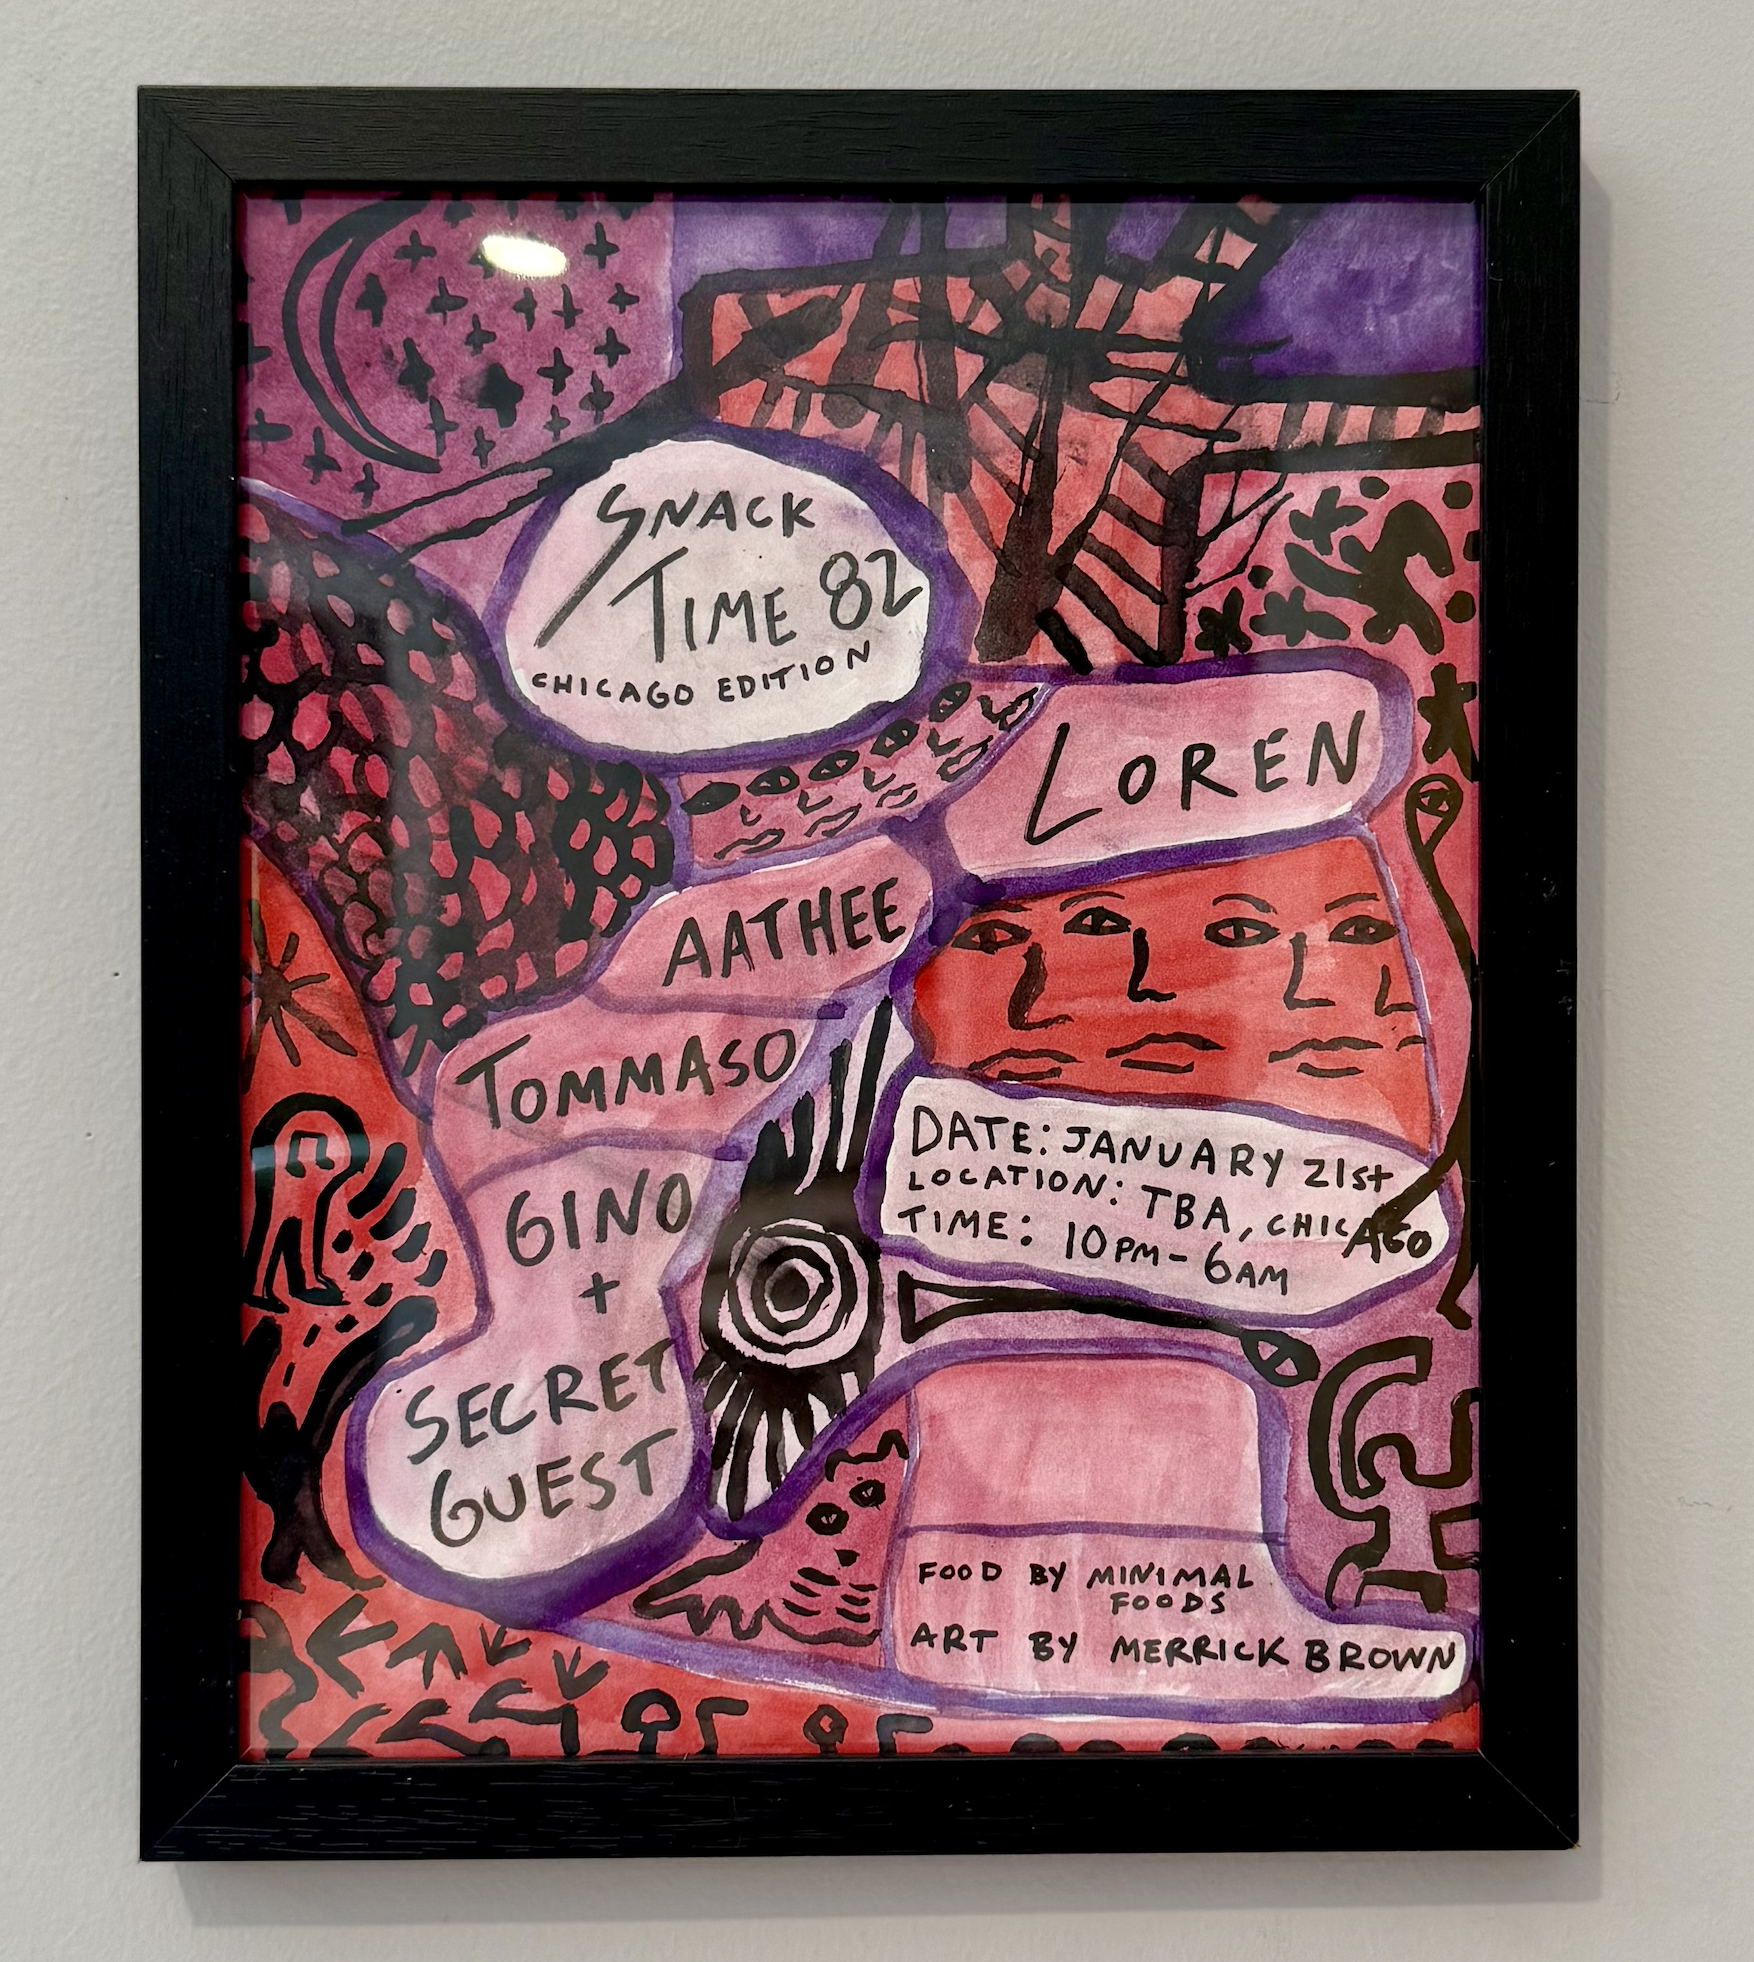 SNACK
TIME 82
CHICAGO EDITION
LOREN
AATHEE
TOMMASO
GINO
+
SECRET
GUEST
DATE: JANUARY 21st
LOCATION: TBA, CHICAGO
TIME: 10PM - 6AM
FOOD BY MINIMAL
FOODS
ART BY MERRICK BROWN